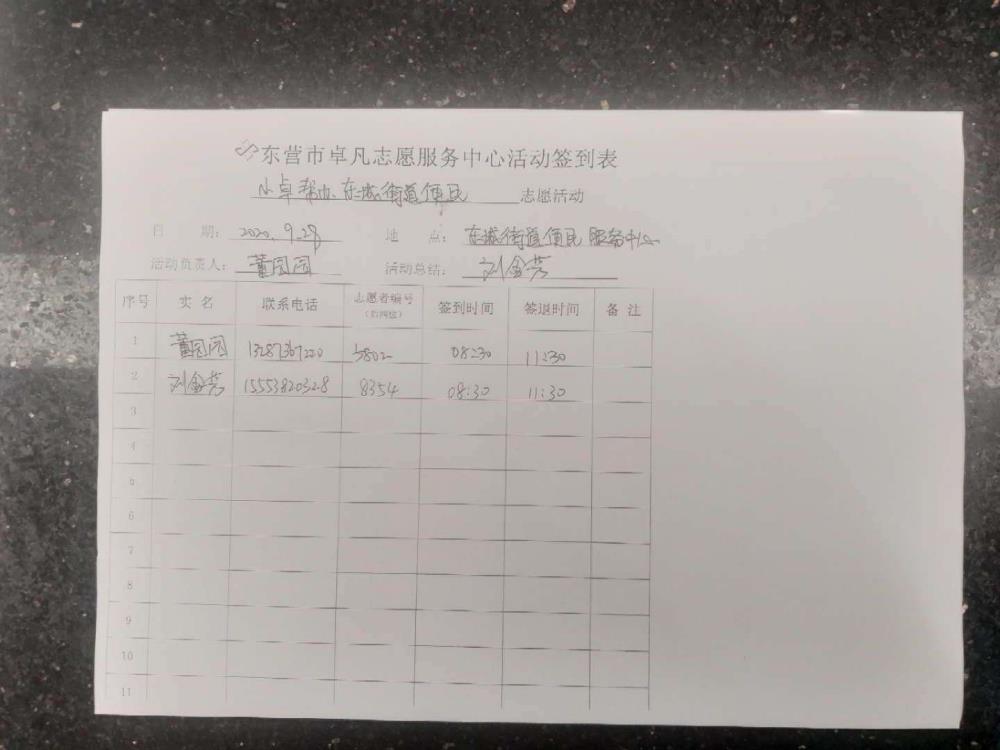 东营市卓凡志愿服务中心活动签到表
小卓帮办东城街道便民 志愿活动
日 期： 2020.9.28 地 点： 东城街道便民服务中心
活动负责人： 董园园 活动总结： 刘金芳
序号 实名 联系电话 志愿者编号（后四位） 签到时间 签退时间 备注
1 董园园 13287367220 3802 08:30 11:30
2 刘金芳 15553820328 8354 08:30 11:30
3
4
5
6
7
8
9
10
11